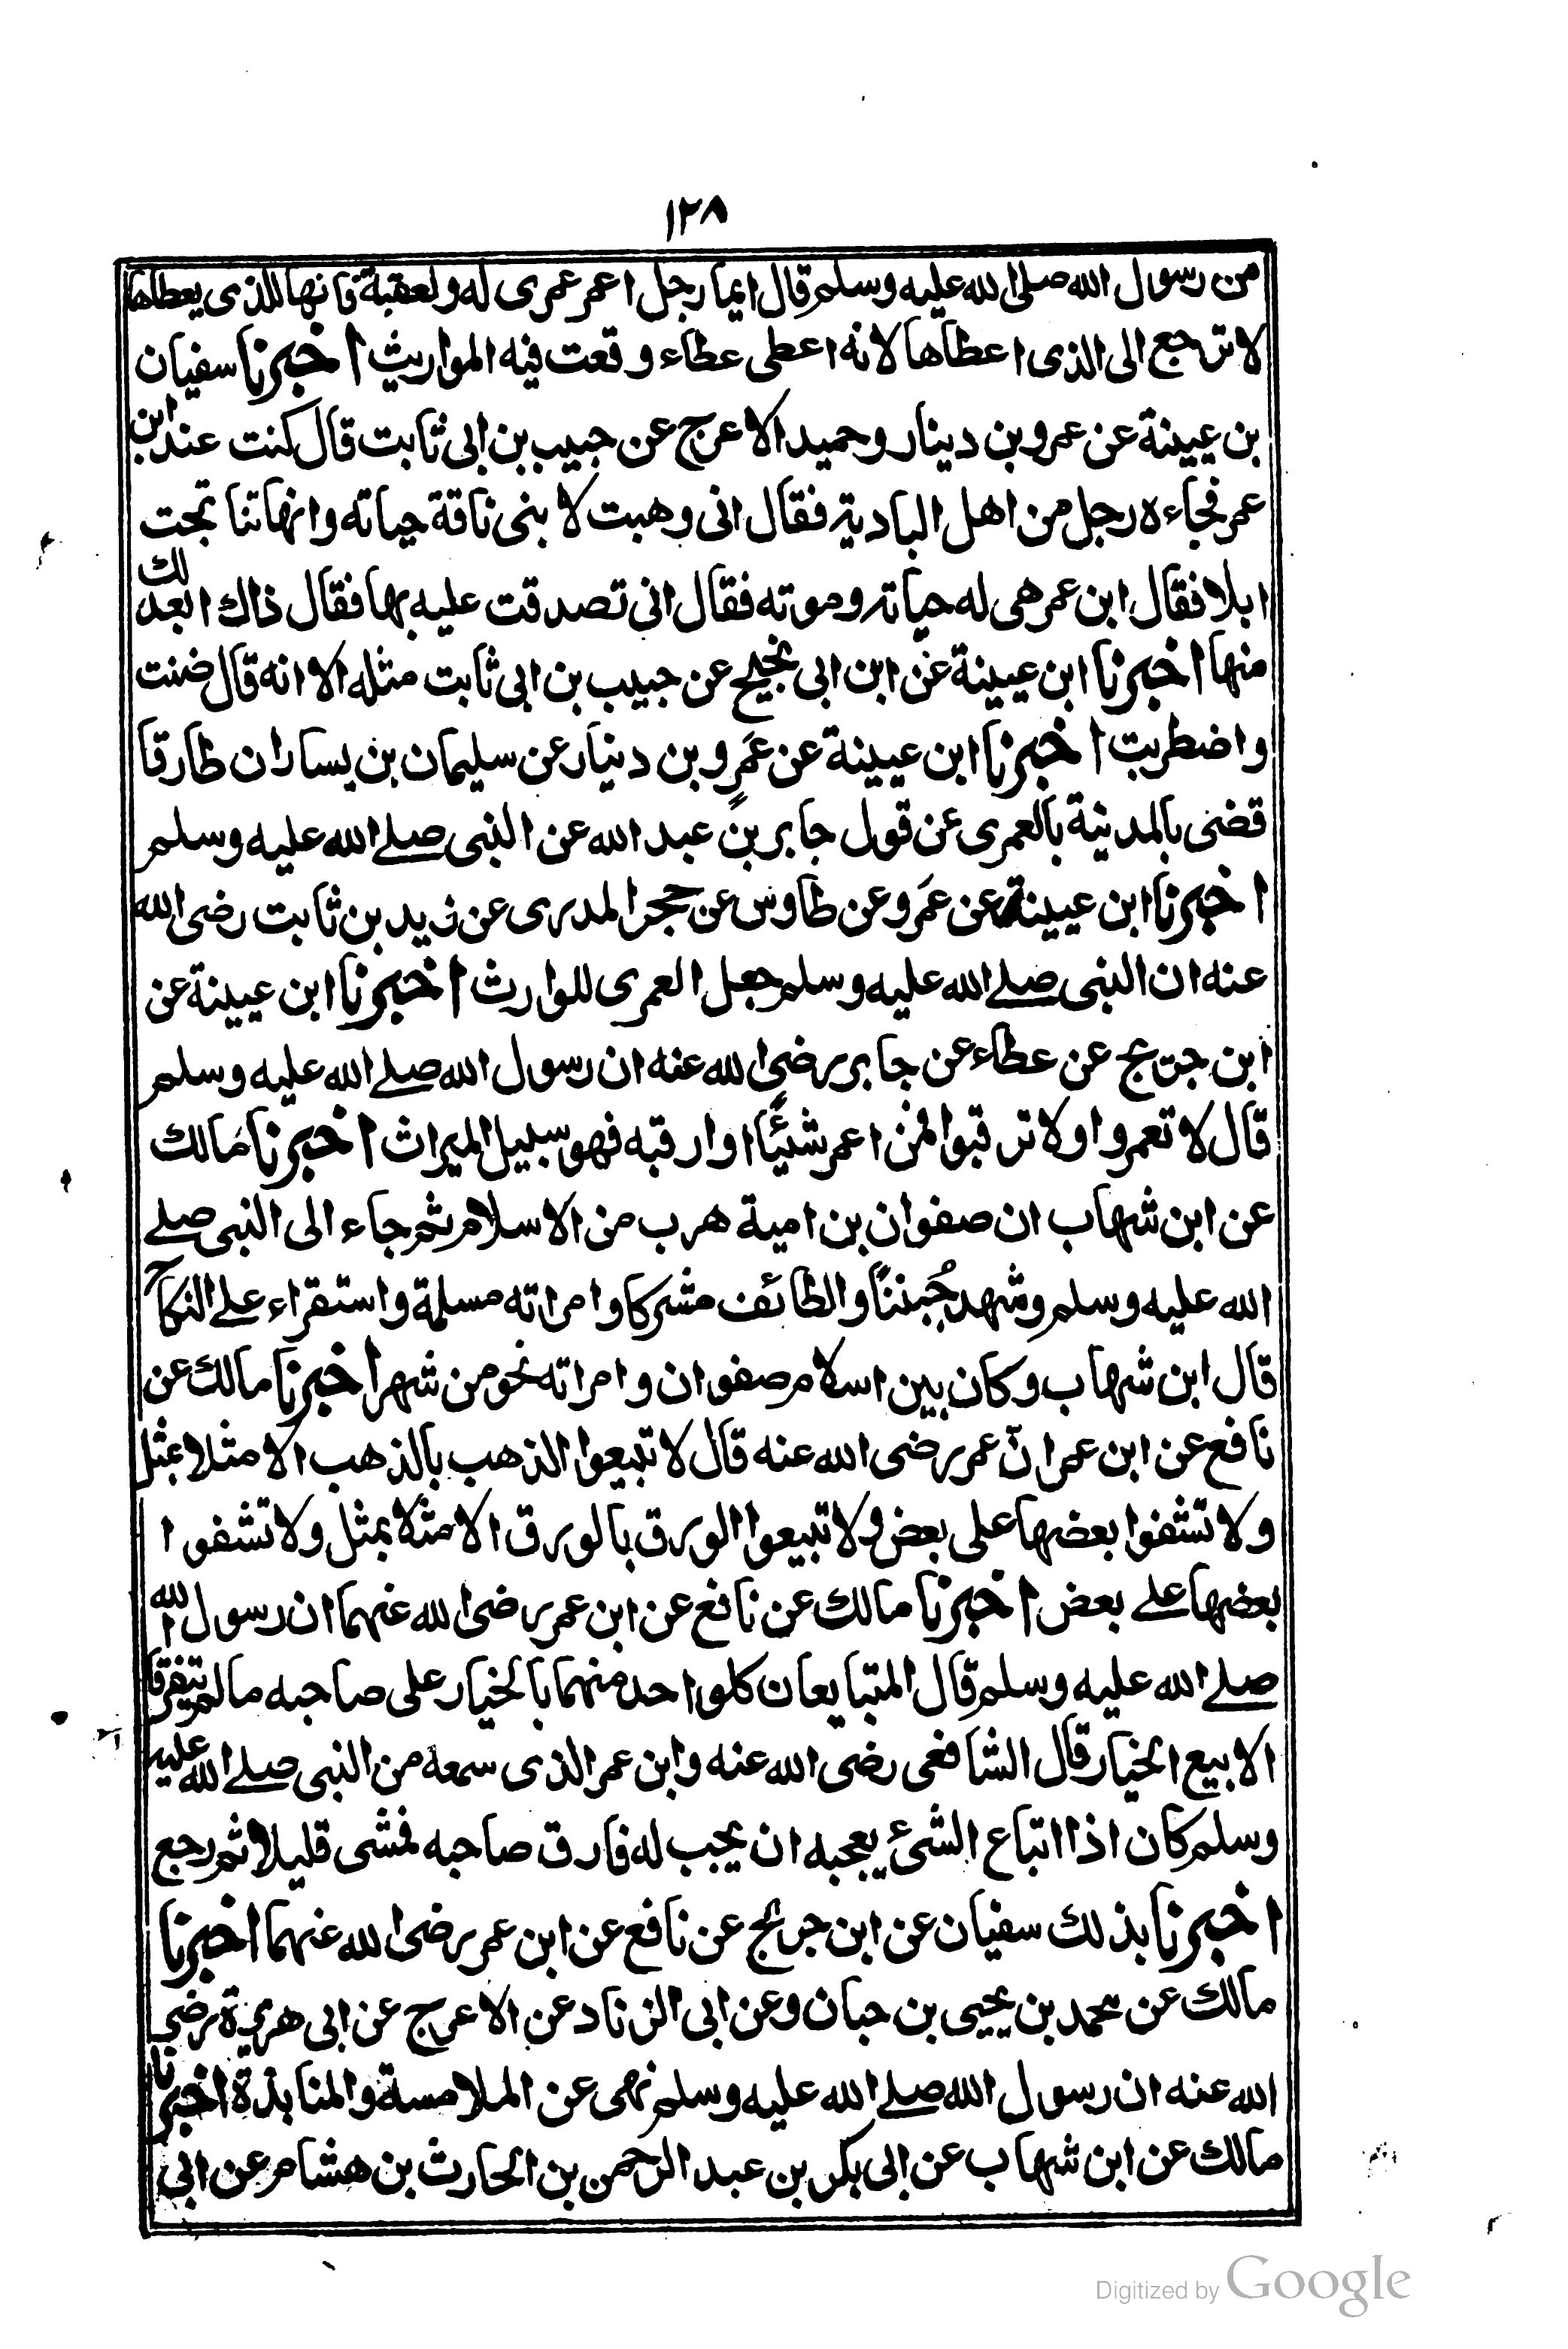 ١٢٨
من رسول الله صلى الله عليه وسلم قال ايما رجل اعمر عمرى له ولعقبة فانها للذى يعطاها
لا ترجع الى الذى اعطاها لانه اعطى عطاء وقعت فيه المواريث اخبرنا سفيان
بن عيينة عن عمرو بن دينار وحميد الاعرج عن حبيب بن ابى ثابت قال كنت عند ابن
عمر فجاءه رجل من اهل البادية فقال انى وهبت لابنى ناقة حياته وانها تناتجت
ابلا فقال ابن عمر هى له حياته وموته فقال انى تصدقت عليه بها فقال ذاك ابعد لك
منها اخبرنا ابن عيينة عن ابن ابى نجيح عن حبيب بن ابى ثابت مثله الا انه قال ضنت
واضطربت اخبرنا ابن عيينة عن عمرو بن دينار عن سليمان بن يسار ان طارقا
قضى بالمدينة بالعمرى عن قول جابر بن عبد الله عن النبى صلے الله عليه وسلم
اخبرنا ابن عيينة عن عمرو عن طاوس عن حجر المدرى عن زيد بن ثابت رضى الله
عنه ان النبى صلے الله عليه وسلم جعل العمرى للوارث اخبرنا ابن عيينة عن
ابن جريج عن عطاء عن جابر رضى الله عنه ان رسول الله صلے الله عليه وسلم
قال لا تعمروا ولا ترقبوا فمن اعمر شيئا او ارقبه فهو سبيل الميراث اخبرنا مالك
عن ابن شهاب ان صفوان بن امية هرب من الاسلام ثم جاء الى النبى صلے
الله عليه وسلم وشهد حُنينًا والطائف مشركا وامراته مسلمة واستقراء علے النكاح
قال ابن شهاب وكان بين اسلام صفوان وامراته نحو من شهر اخبرنا مالك عن
نافع عن ابن عمر ان عمر رضى الله عنه قال لا تبيعوا الذهب بالذهب الا مثلا بمثل
ولا تشفوا بعضها على بعض ولا تبيعوا الورق بالورق الا مثلا بمثل ولا تشفوا
بعضها علے بعض اخبرنا مالك عن نافع عن ابن عمر رضى الله عنهما ان رسول الله
صلے الله عليه وسلم قال المتبايعان كلواحد منهما بالخيار على صاحبه ما لم يتفرقا
الا بيع الخيار قال الشافعى رضى الله عنه وابن عمر الذى سمعه من النبى صلے الله عليه
وسلم كان اذا اتباع الشئ يعجبه ان يجب له فارق صاحبه فمشى قليلا ثم رجع
اخبرنا بذلك سفيان عن ابن جريج عن نافع عن ابن عمر رضى الله عنهما اخبرنا
مالك عن محمد بن يحيى بن حبان وعن ابى الزناد عن الاعرج عن ابى هريرة رضى
الله عنه ان رسول الله صلے الله عليه وسلم نهى عن الملامسة والمنابذة اخبرنا
مالك عن ابن شهاب عن ابى بكر بن عبد الرحمن بن الحارث بن هشام عن ابى
Digitized by Google